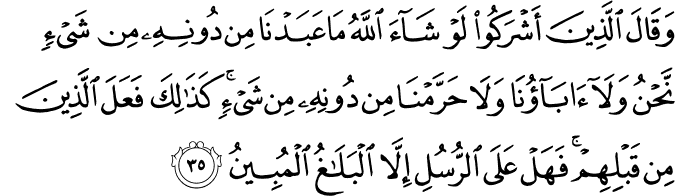 وَقَالَ ٱلَّذِينَ أَشۡرَكُواْ لَوۡ شَآءَ ٱللَّهُ مَا عَبَدۡنَا مِن دُونِهِۦ مِن شَيۡءٖ
نَّحۡنُ وَلَآ ءَابَآؤُنَا وَلَا حَرَّمۡنَا مِن دُونِهِۦ مِن شَيۡءٖۚ كَذَٰلِكَ فَعَلَ ٱلَّذِينَ
مِن قَبۡلِهِمۡۚ فَهَلۡ عَلَى ٱلرُّسُلِ إِلَّا ٱلۡبَلَٰغُ ٱلۡمُبِينُ ٣٥